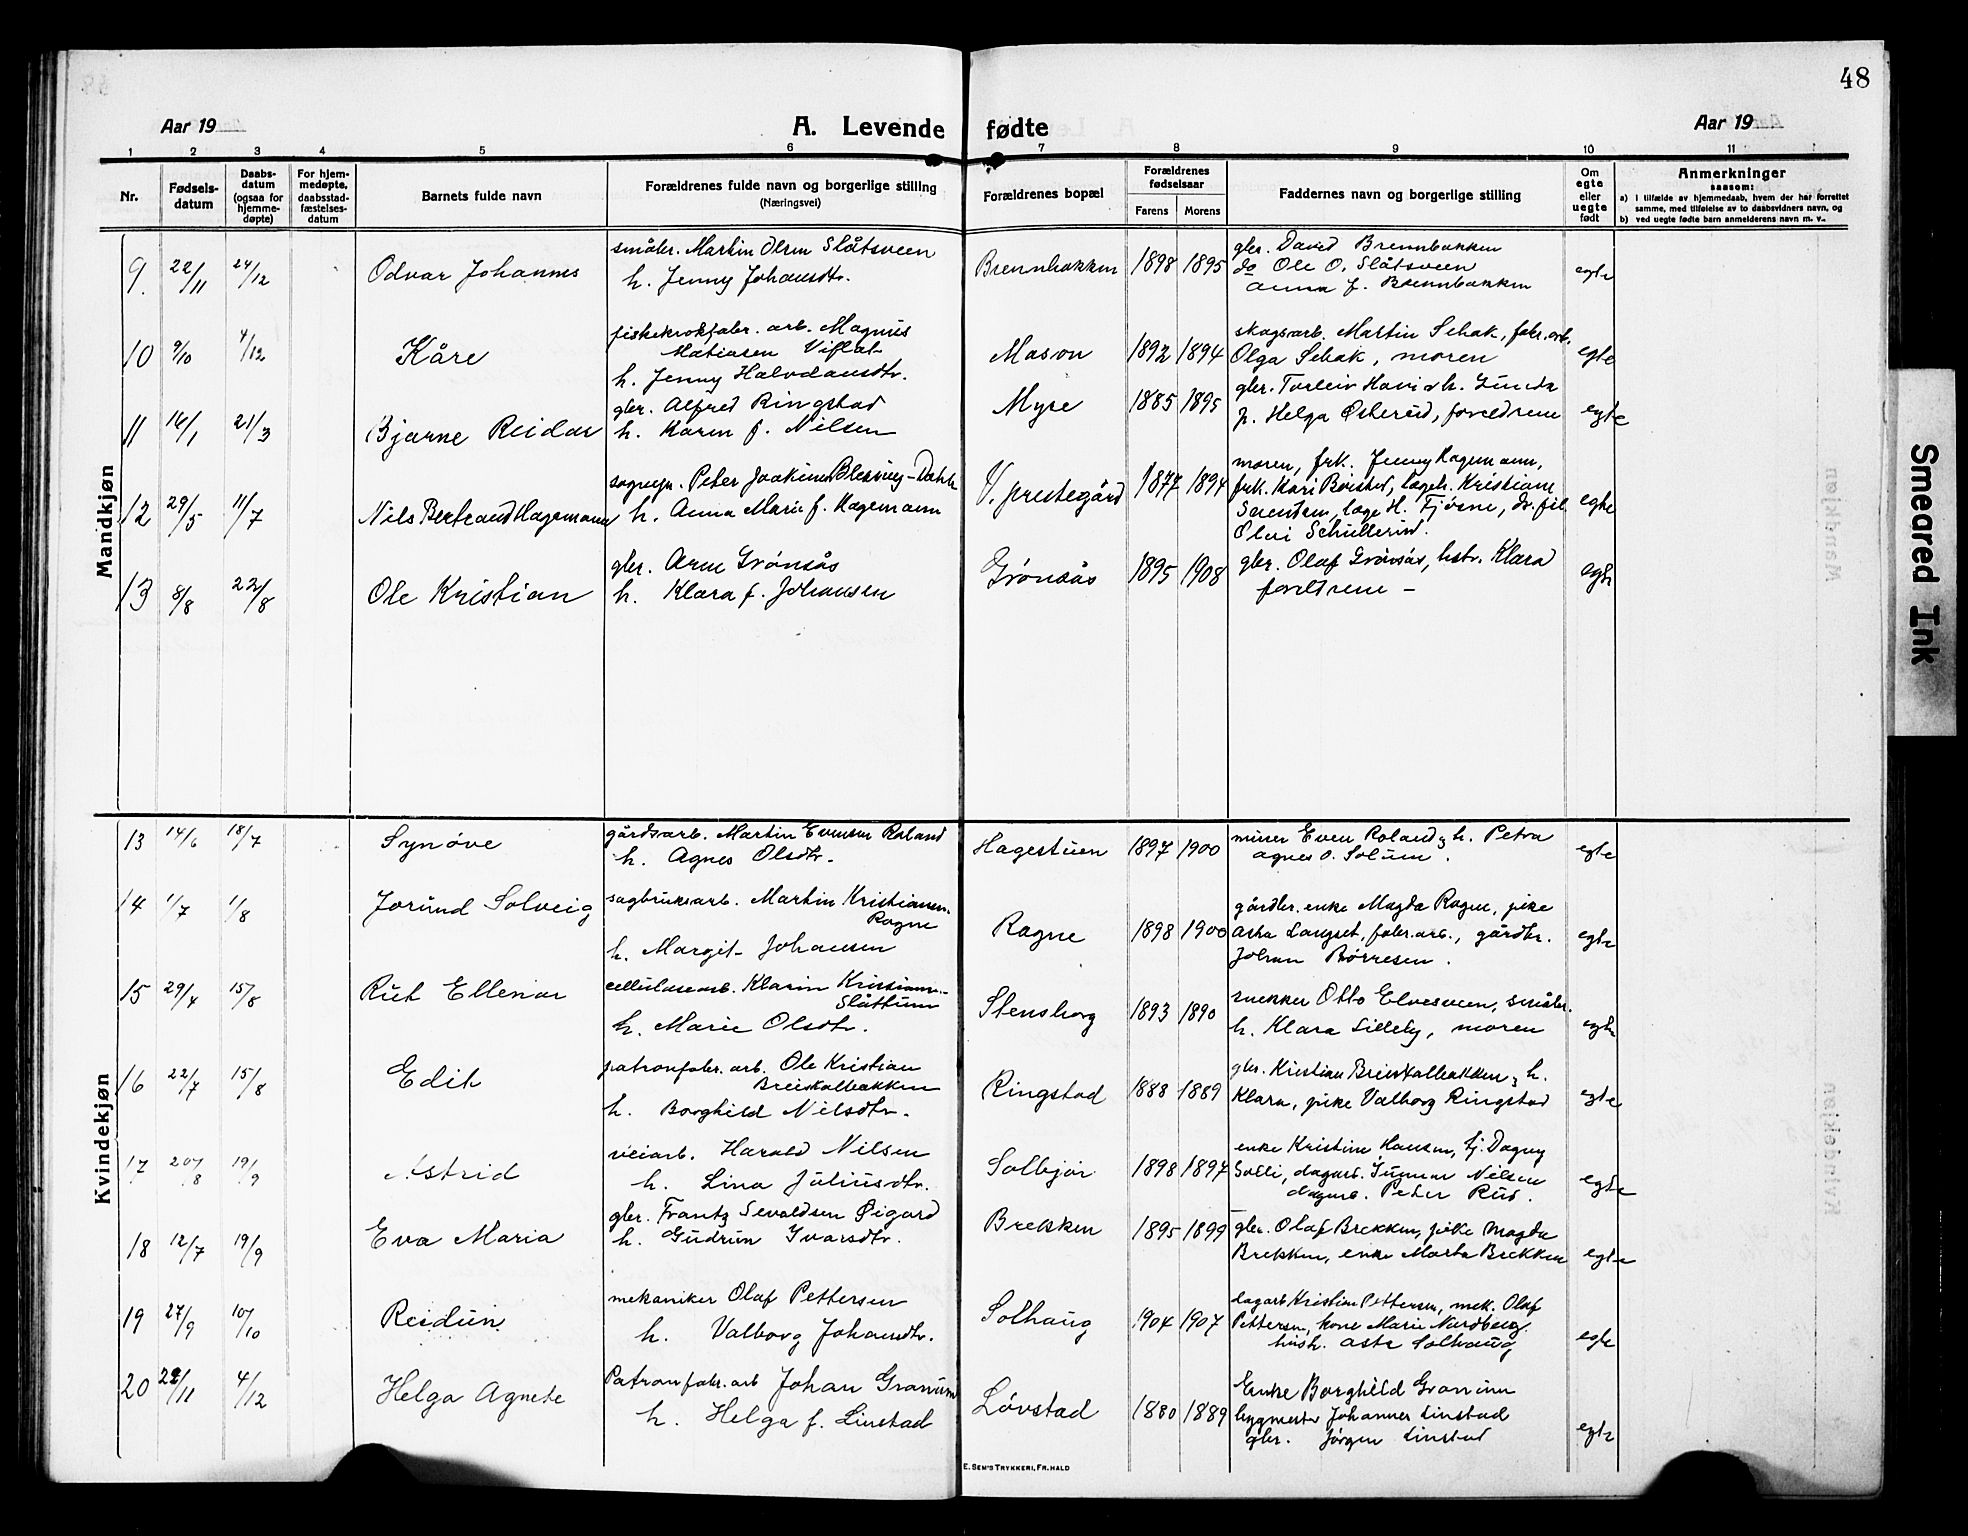 48
Aar 19
A. Levende fødte
Aar 19
1 2 3 4 5 6 7 8 9 10 11
Nr.
Fødsels-
datum
Daabs-
datum
(ogsaa for
hjemme-
døpte)
For hjem-
medøpte,
daabsstad-
fæstelses-
datum
Barnets fulde navn
Forældrenes fulde navn og borgerlige stilling
(Næringsvei)
Forældrenes bopæl
Forældrenes
fødselsaar
Farens Morens
Faddernes navn og borgerlige stilling
Om
egte
eller
uegte
født
Anmerkninger
saasom:
a) i tilfælde av hjemmedaab, hvem der har forrettet
samme, med tilføielse av to daabsvidners navn, og
b) ved uegte fødte barn anmelderens navn m. v.
Mandkjøn
9. 22/11 24/12 Odvar Johannes
småbr. Martin Olsen Slåtsveen
h. Jenny Johansdtr.
Brennbakken 1898 1895
gbr. David Brennbakken
do Ole O. Slåtsveen
Anna f. Brennbakken
egte
10 9/10 4/12 Kåre
fiskekrokfabr. arb. Magnus
Matiasen Viflat
h. Jenny Halvdansdtr.
Mason 1892 1894
skogsarb. Martin Sehak, fabr. arb.
Olga Sehak, moren
egte
11 16/1 21/3 Bjarne Reidar
gbr. Alfred Ringstad
h. Karen f. Nilsen
Myre 1885 1895
gbr. Torleiv Hovi & h. Gunda
p. Helga Østerud, foreldrene
egte
12 29/5 11/7 Nils Bertrand Hagemann
sognepr. Peter Joakim Blessing-Dahle
h. Anna Marie f. Hagemann
V. prestegård 1877 1894
moren, frk. Jenny Hagemann,
frk. Kari Boisted, lægefr. Kristiane
Svendsen, læge H. Fjøsne, dr. fil.
Olui Schullerud.
egte
13 8/8 22/8 Ole Kristian
gbr. Arne Grönsås
h. Klara f. Johansen
Grönsås 1895 1908
gbr. Olaf Grönsås, hstr. Klara
foreldrene –
egte
Kvindekjøn
13 14/6 18/7 Synöve
gårdsarb. Martin Evensen Roland
h. Agnes Olsdtr.
Hagestuen 1897 1900
murer Even Roland & h. Petra
Agnes O. Solum.
egte
14 1/7 1/8 Jorund Solveig
sagbruksarb. Martin Kristiansen
Rogne
h. Margit Johansen
Rogne 1898 1900
gårdbr. enke Magda Rogne, pike
Asta Langset, fabr. arb., gårdbr.
Johan Börresen.
egte
15 29/4 15/8 Rut Ellenor
cellulosearb. Klarin Kristians.
Slåttum
h. Marie Olsdtr.
Stensborg 1893 1890
snekker Otto Elvesveen, småbr.
h. Klara Lilleby, moren
egte
16 22/7 15/8 Edit
patronfabr. arb. Ole Kristian
Breiskalbakken
h. Borghild Nilsdtr.
Ringstad 1888 1889
gbr. Kristian Breiskalbakken & h.
Klara, pike Valborg Ringstad
egte
17 20/8 19/9 Astrid
veiarb. Harald Nilsen
h. Lina Juliusdtr.
Solbjör 1898 1897
enke Kristine Hansen, tj. Dagny
Solli, dagarb. Ingvar Nilsen
dagarb. Peter Rud.
egte
18 12/7 19/9 Eva Maria
gbr. Frantz Sevaldsen Øigard
h. Gudrun Ivarsdtr.
Brekken 1895 1899
gbr. Olaf Brekken, pike Magda
Brekken, enke Marta Brekken
egte
19 27/9 10/10 Reidun
mekaniker Olaf Pettersen
h. Valborg Johansdtr.
Solhaug 1904 1907
dagarb Kristian Pettersen, mek. Olaf
Pettersen, kone Marie Nordberg.
hush. Asta Solhaug
egte
20 22/11 4/12 Helga Agnete
Patronfabr. arb Johan Granum
h. Helga f. Linstad
Lövstad 1880 1889
Enke Borghild Granum
byggmester Johannes Linstad
gbr. Jörgen Linstad
egte
E. SEM'S TRYKKERI, FR. HALD
Smeared Ink